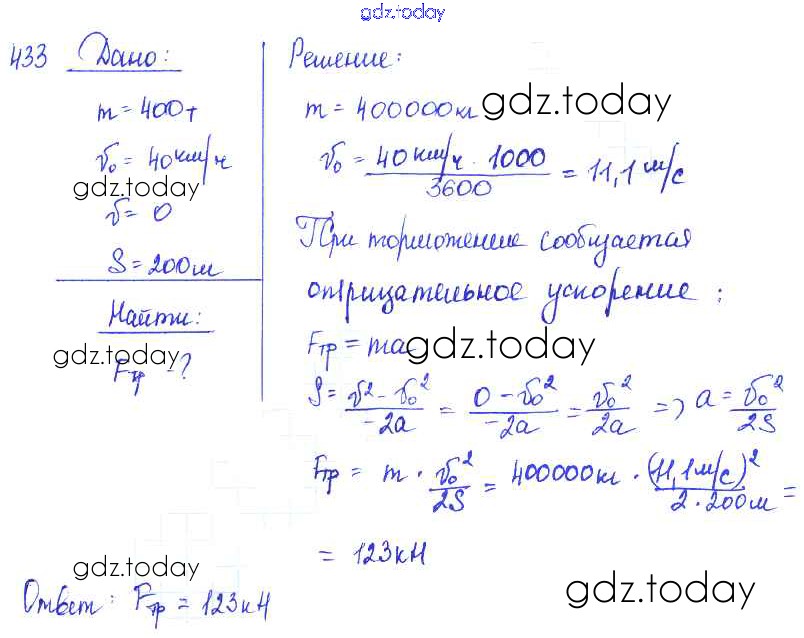 gdz.today
433 Дано:
m = 400т
v₀ = 40 км/ч
gdz.today
v = 0
S = 200м
Найти:
gdz.today
Fтр - ?
Решение:
m = 400000кг gdz.today
v₀ = 40 км/ч · 1000 / 3600 = 11,1 м/с
При торможение сообщается
отрицательное ускорение :
Fтр = ma gdz.today
S = v² - v₀² / -2a = 0 - v₀² / -2a = v₀² / 2a => a = v₀² / 2S
Fтр = m · v₀² / 2S = 400000кг · (11,1 м/с)² / 2 · 200м =
= 123кН
gdz.today
gdz.today
Ответ: Fтр = 123кН